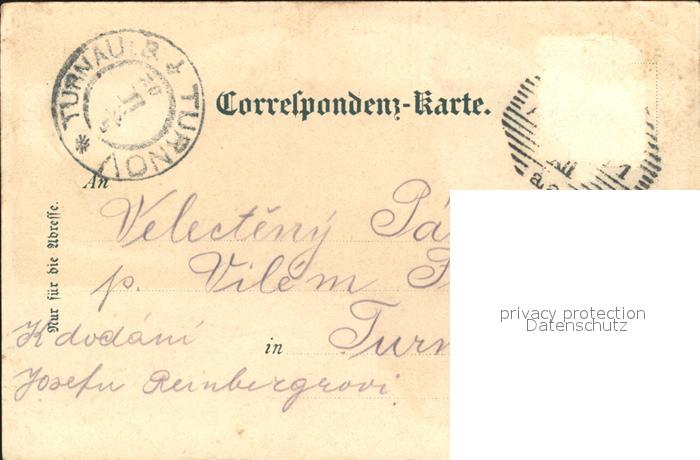 TURNAU i. B. TURNOV
Correspondenz-Karte.
XII 1
An
Velectěný Pá
p. Vilém
Nur für die Adresse.
K dodání
in Turn
Josefu Reinbergrovi
privacy protection
Datenschutz